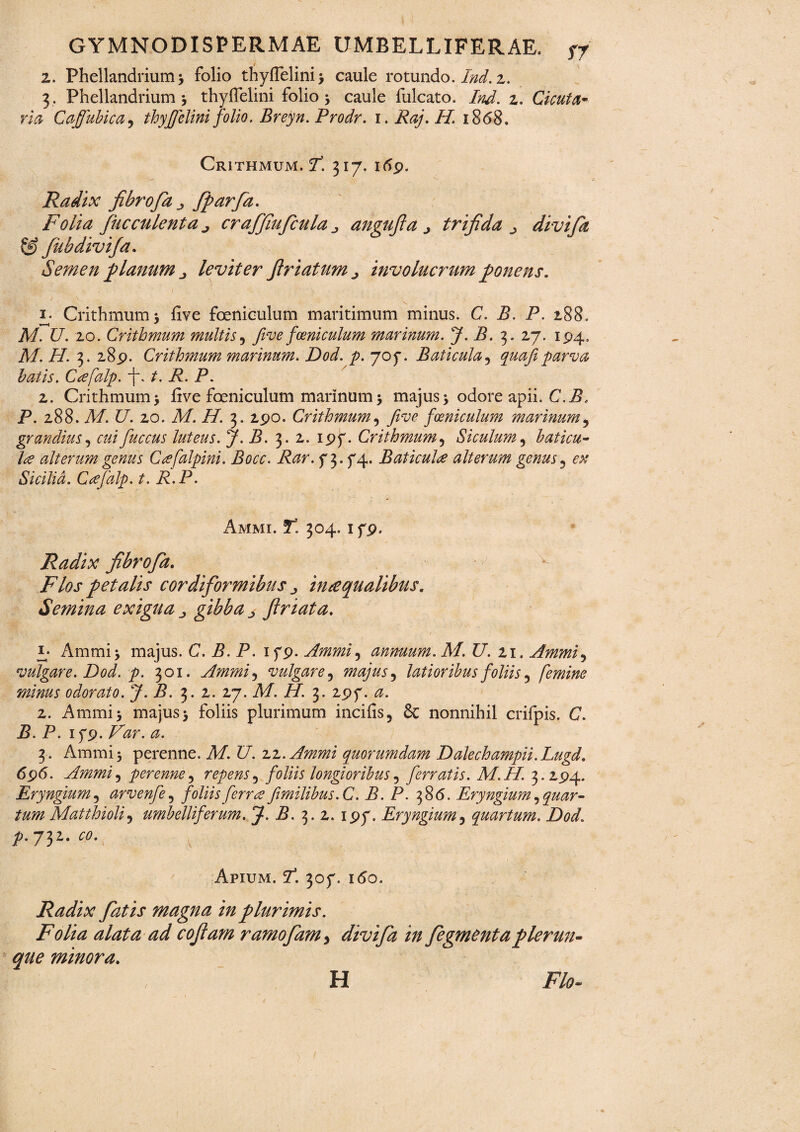 GYMNODISPERMAE UMBELLIFERAE. 57
2. Phellandrium; folio thyſſelini; caule rotundo. Ind. 2.
3. Phellandrium; thyſſelini folio; caule ſulcato. Ind. 2. Cicuta-
ria Caſſubica, thyſſelini folio. Breyn. Prodr. 1. Raj. H. 1868.
Crithmum. T. 317. 169.
Radix fibroſa, ſparſa.
Folia ſucculenta, craſſiuſcula, anguſta, trifida, diviſa
& ſubdiviſa.
Semen planum, leviter ſtriatum, involucrum ponens.
1. Crithmum; ſive fœniculum maritimum minus. C. B. P. 288.
M. U. 20. Crithmum multis, ſive fœniculum marinum. J. B. 3. 27. 194.
M. H. 3. 289. Crithmum marinum. Dod. p. 705. Baticula, quaſi parva
batis. Cæſalp. †. t. R. P.
2. Crithmum; ſive fœniculum marinum; majus; odore apii. C. B.
P. 288. M. U. 20. M. H. 3. 290. Crithmum, ſive fœniculum marinum,
grandius, cui ſuccus luteus. J. B. 3. 2. 195. Crithmum, Siculum, baticu-
læ alterum genus Cæſalpini. Bocc. Rar. 53. 54. Baticulæ alterum genus, ex
Siciliâ. Cæſalp. t. R. P.
Ammi. T. 304. 159.
Radix fibroſa.
Flos petalis cordiformibus, inæqualibus.
Semina exigua, gibba, ſtriata.
1. Ammi; majus. C. B. P. 159. Ammi, annuum. M. U. 21. Ammi,
vulgare. Dod. p. 301. Ammi, vulgare, majus, latioribus foliis, ſemine
minus odorato. J. B. 3. 2. 27. M. H. 3. 295. a.
2. Ammi; majus; foliis plurimum inciſis, & nonnihil criſpis. C.
B. P. 159. Var. a.
3. Ammi; perenne. M. U. 22. Ammi quorumdam Dalechampii. Lugd.
696. Ammi, perenne, repens, foliis longioribus, ſerratis. M. H. 3. 294.
Eryngium, arvenſe, foliis ſerræ ſimilibus. C. B. P. 386. Eryngium, quar-
tum Matthioli, umbelliferum. J. B. 3. 2. 195. Eryngium, quartum. Dod.
p. 732. co.
Apium. T. 305. 160.
Radix ſatis magna in plurimis.
Folia alata ad coſtam ramoſam, diviſa in ſegmenta plerun-
que minora.
H Flo-